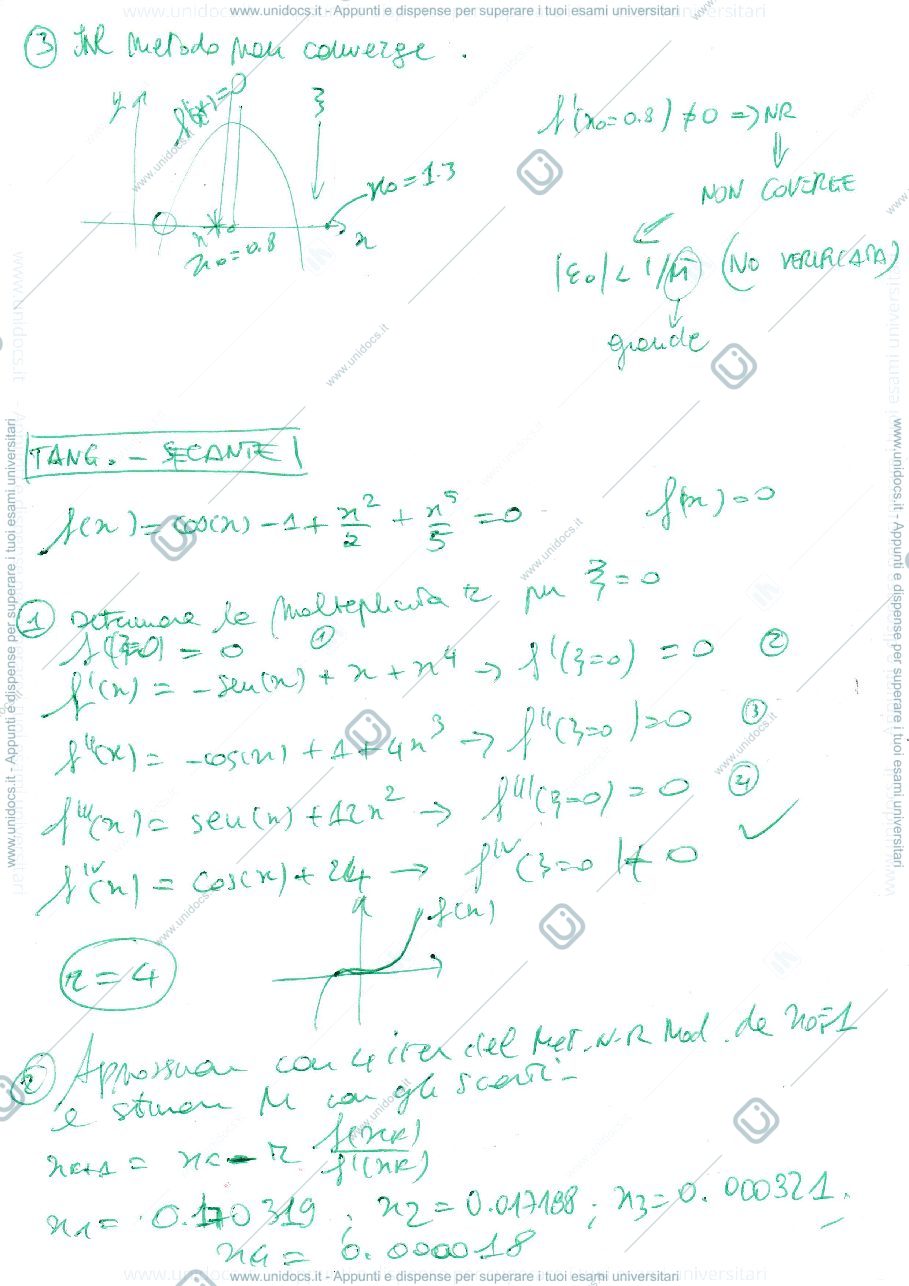 www.unidocs.it - Appunti e dispense per superare i tuoi esami universitari
③ Il metodo non converge.
y
f'(x)=0
ξ
x₀=1.3
x
x₀=0.8
f'(x₀=0.8) ≠ 0 ⇒ NR
⇓
NON COVERGE
|ε₀| < 1/M (NO VERIFICATA)
grande
TANG. - SECANTE
f(x) = cos(x) - 1 + x²/2 + x⁵/5 = 0 f(x)=0
① Determinare la molteplicità r per ξ=0
f(ξ=0) = 0 ①
f'(x) = -sen(x) + x + x⁴ → f'(ξ=0) = 0 ②
f''(x) = -cos(x) + 1 + 4x³ → f''(ξ=0) = 0 ③
f'''(x) = sen(x) + 12x² → f'''(ξ=0) = 0 ④
f^IV(x) = cos(x) + 24 → f^IV(ξ=0) ≠ 0 ✓
f(x)
r = 4
② Approssimare con 4 iter del Met. N-R Mod. da x₀=1
e stimare M con gli scarti -
x_{k+1} = x_k - r f(x_k)/f'(x_k)
x₁ = 0.170319 ; x₂ = 0.017188 ; x₃ = 0.000321.
x₄ = 0.000018
www.unidocs.it - Appunti e dispense per superare i tuoi esami universitari